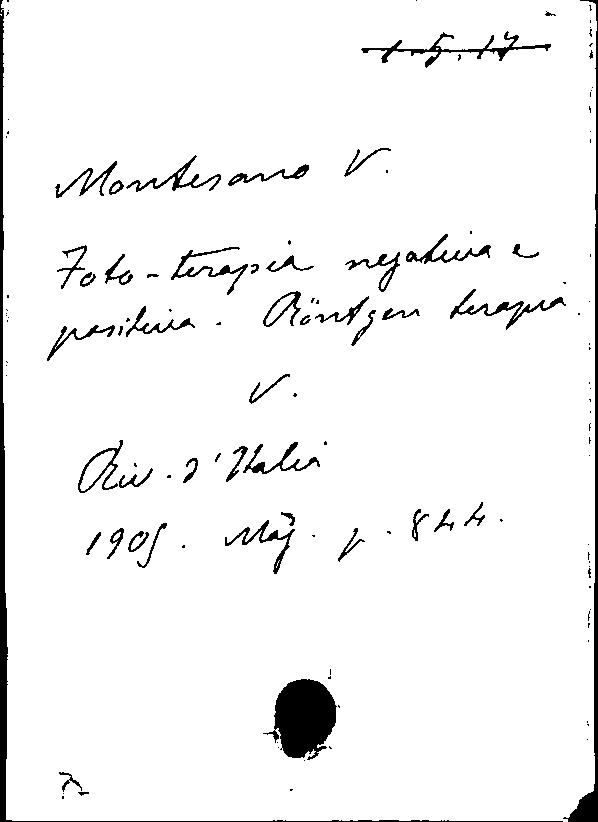 1.5.17
Montesano V.
Foto-terapia negativa e
positiva. Röntgen terapia.
V.
Riv. d'Italia
1905. Mag. p. 844.